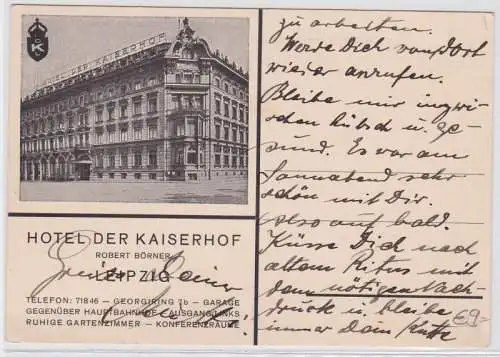 HOTEL DER KAISERHOF
K
HOTEL DER KAISERHOF
ROBERT BÖRNER
LEIPZIG
TELEFON: 71846 – GEORGIRING 7b – GARAGE
GEGENÜBER HAUPTBAHNHOF – AUSGANG LINKS
RUHIGE GARTENZIMMER – KONFERENZRÄUME
zu arbeiten.
Werde Dich von dort
wieder anrufen.
Bleibe mir inzwi-
schen hübsch u. ge-
sund. Es war am
Sonnabend sehr
schön mit Dir.
Also auf bald.
Küsse Dich nach
altem Ritus mit
dem nötigen Nach-
druck u. bleibe
immer Dein
€9-